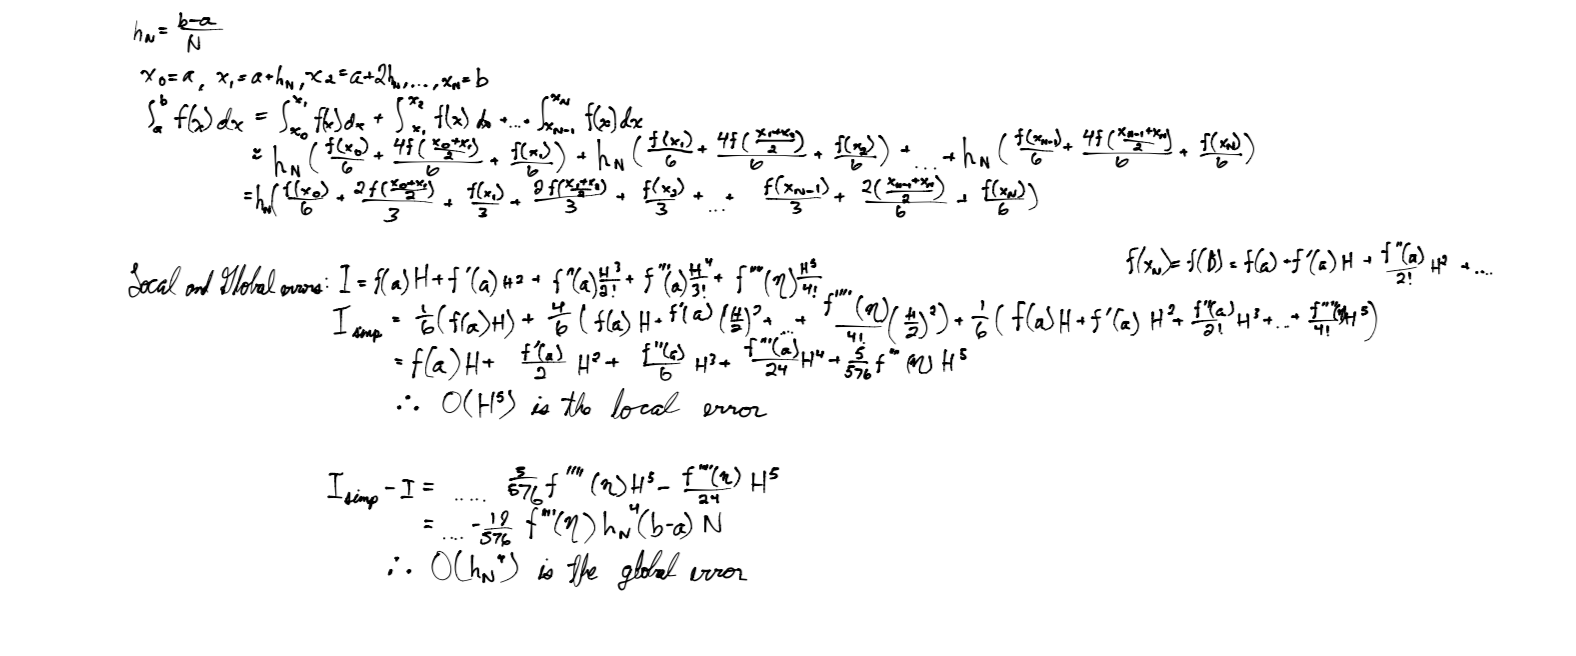 h_N = (b-a)/N
x_0 = a, x_1 = a+h_N, x_2 = a+2h_N, ..., x_N = b
∫_a^b f(x) dx = ∫_{x_0}^{x_1} f(x) dx + ∫_{x_1}^{x_2} f(x) dx + ... + ∫_{x_{N-1}}^{x_N} f(x) dx
≈ h_N ( f(x_0)/6 + 4f((x_0+x_1)/2)/6 + f(x_1)/6 ) + h_N ( f(x_1)/6 + 4f((x_1+x_2)/2)/6 + f(x_2)/6 ) + ... + h_N ( f(x_{N-1})/6 + 4f((x_{N-1}+x_N)/2)/6 + f(x_N)/6 )
= h_N ( f(x_0)/6 + 2f((x_0+x_1)/2)/3 + f(x_1)/3 + 2f((x_1+x_2)/2)/3 + f(x_2)/3 + ... + f(x_{N-1})/3 + 2((x_{N-1}+x_N)/2)/6 + f(x_N)/6 )
f(x_N) = f(b) = f(a) + f'(a) H + f''(a)/2! H^2 + ....
Local and Global errors: I = f(a) H + f'(a) H^2 + f''(a) H^3/2! + f'''(a) H^4/3! + f''''(η) H^5/4!
I_simp = 1/6 (f(a)H) + 4/6 ( f(a) H + f'(a) (H/2)^2 + ... + f''''(η)/4! (H/2)^2 ) + 1/6 ( f(a) H + f'(a) H^2 + f''(a)/2! H^3 + ... + f''''(η)/4! H^5 )
= f(a) H + f'(a)/2 H^2 + f''(a)/6 H^3 + f'''(a)/24 H^4 + 5/576 f''''(η) H^5
∴ O(H^5) is the local error
I_simp - I = ..... 5/576 f''''(η) H^5 - f''''(η)/24 H^5
= .... -19/576 f''''(η) h_N^4 (b-a) N
∴ O(h_N^4) is the global error